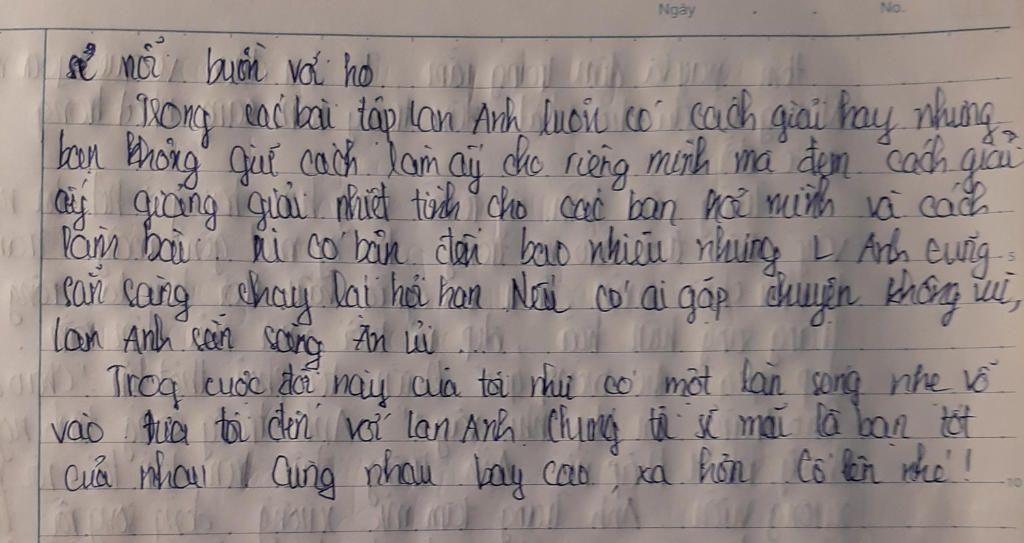 Ngày . . No.
sẻ nổi buồn với họ
Trong các bài tập Lan Anh luôn có cách giải hay nhưng
bạn không giữ cách làm ấy cho riêng mình mà đem cách giải
ấy giảng giải nhiệt tình cho các bạn hỏi mình và cách
làm bài. Dù có bận đến bao nhiêu nhưng L Anh cũng
sẵn sàng chạy lại hỏi han Nếu có ai gặp chuyện không vui,
Lan Anh sẵn sàng An ủi ...
Trog cuộc đời này của tôi như có một làn sóng nhẹ vỗ
vào đưa tôi đến với Lan Anh. Chúng tôi sẽ mãi là bạn tốt
của nhau! Cùng nhau bay cao, xa hơn Cố lên nhé!
5
10